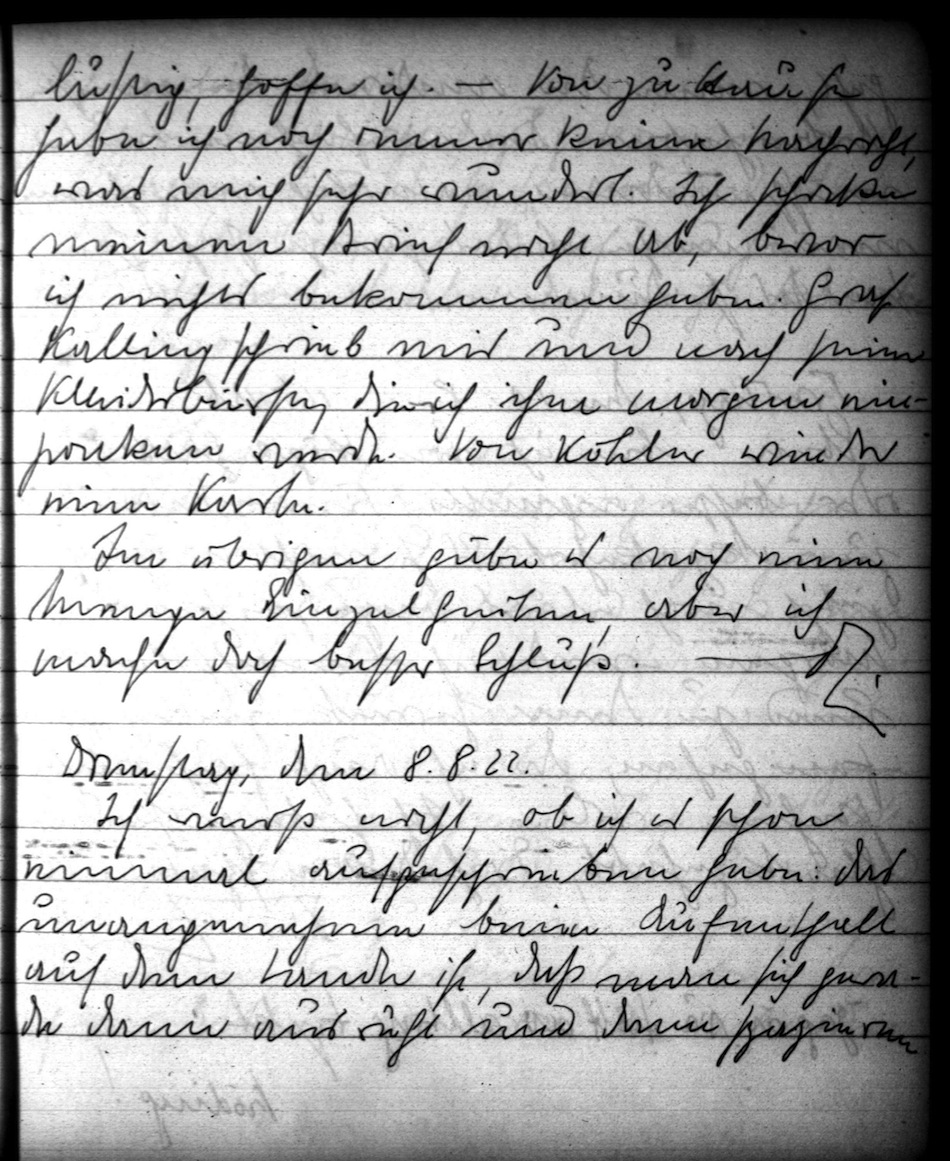 lustig, hoffe ich. — Von zu Hause
habe ich noch immer keine Nachricht,
was mich sehr wundert. Ich schicke
meinen Brief nicht ab, bevor
ich nichts bekommen habe. Graf
Kalling schrieb mir und nach seine
Kleiderbürste, die ich ihm morgen ein-
packen werde. Von Köhler wieder
eine Karte.
Im übrigen gäbe es noch eine
Menge Einzelheiten, aber ich
mache doch besser Schluß. —
Dienstag, den 8.8.22.
Ich weiß nicht, ob ich es schon
einmal aufgeschrieben habe: das
unangenehme beim Aufenthalt
auf dem Lande ist, daß man sich gera-
de dann ausruht und dann spazieren